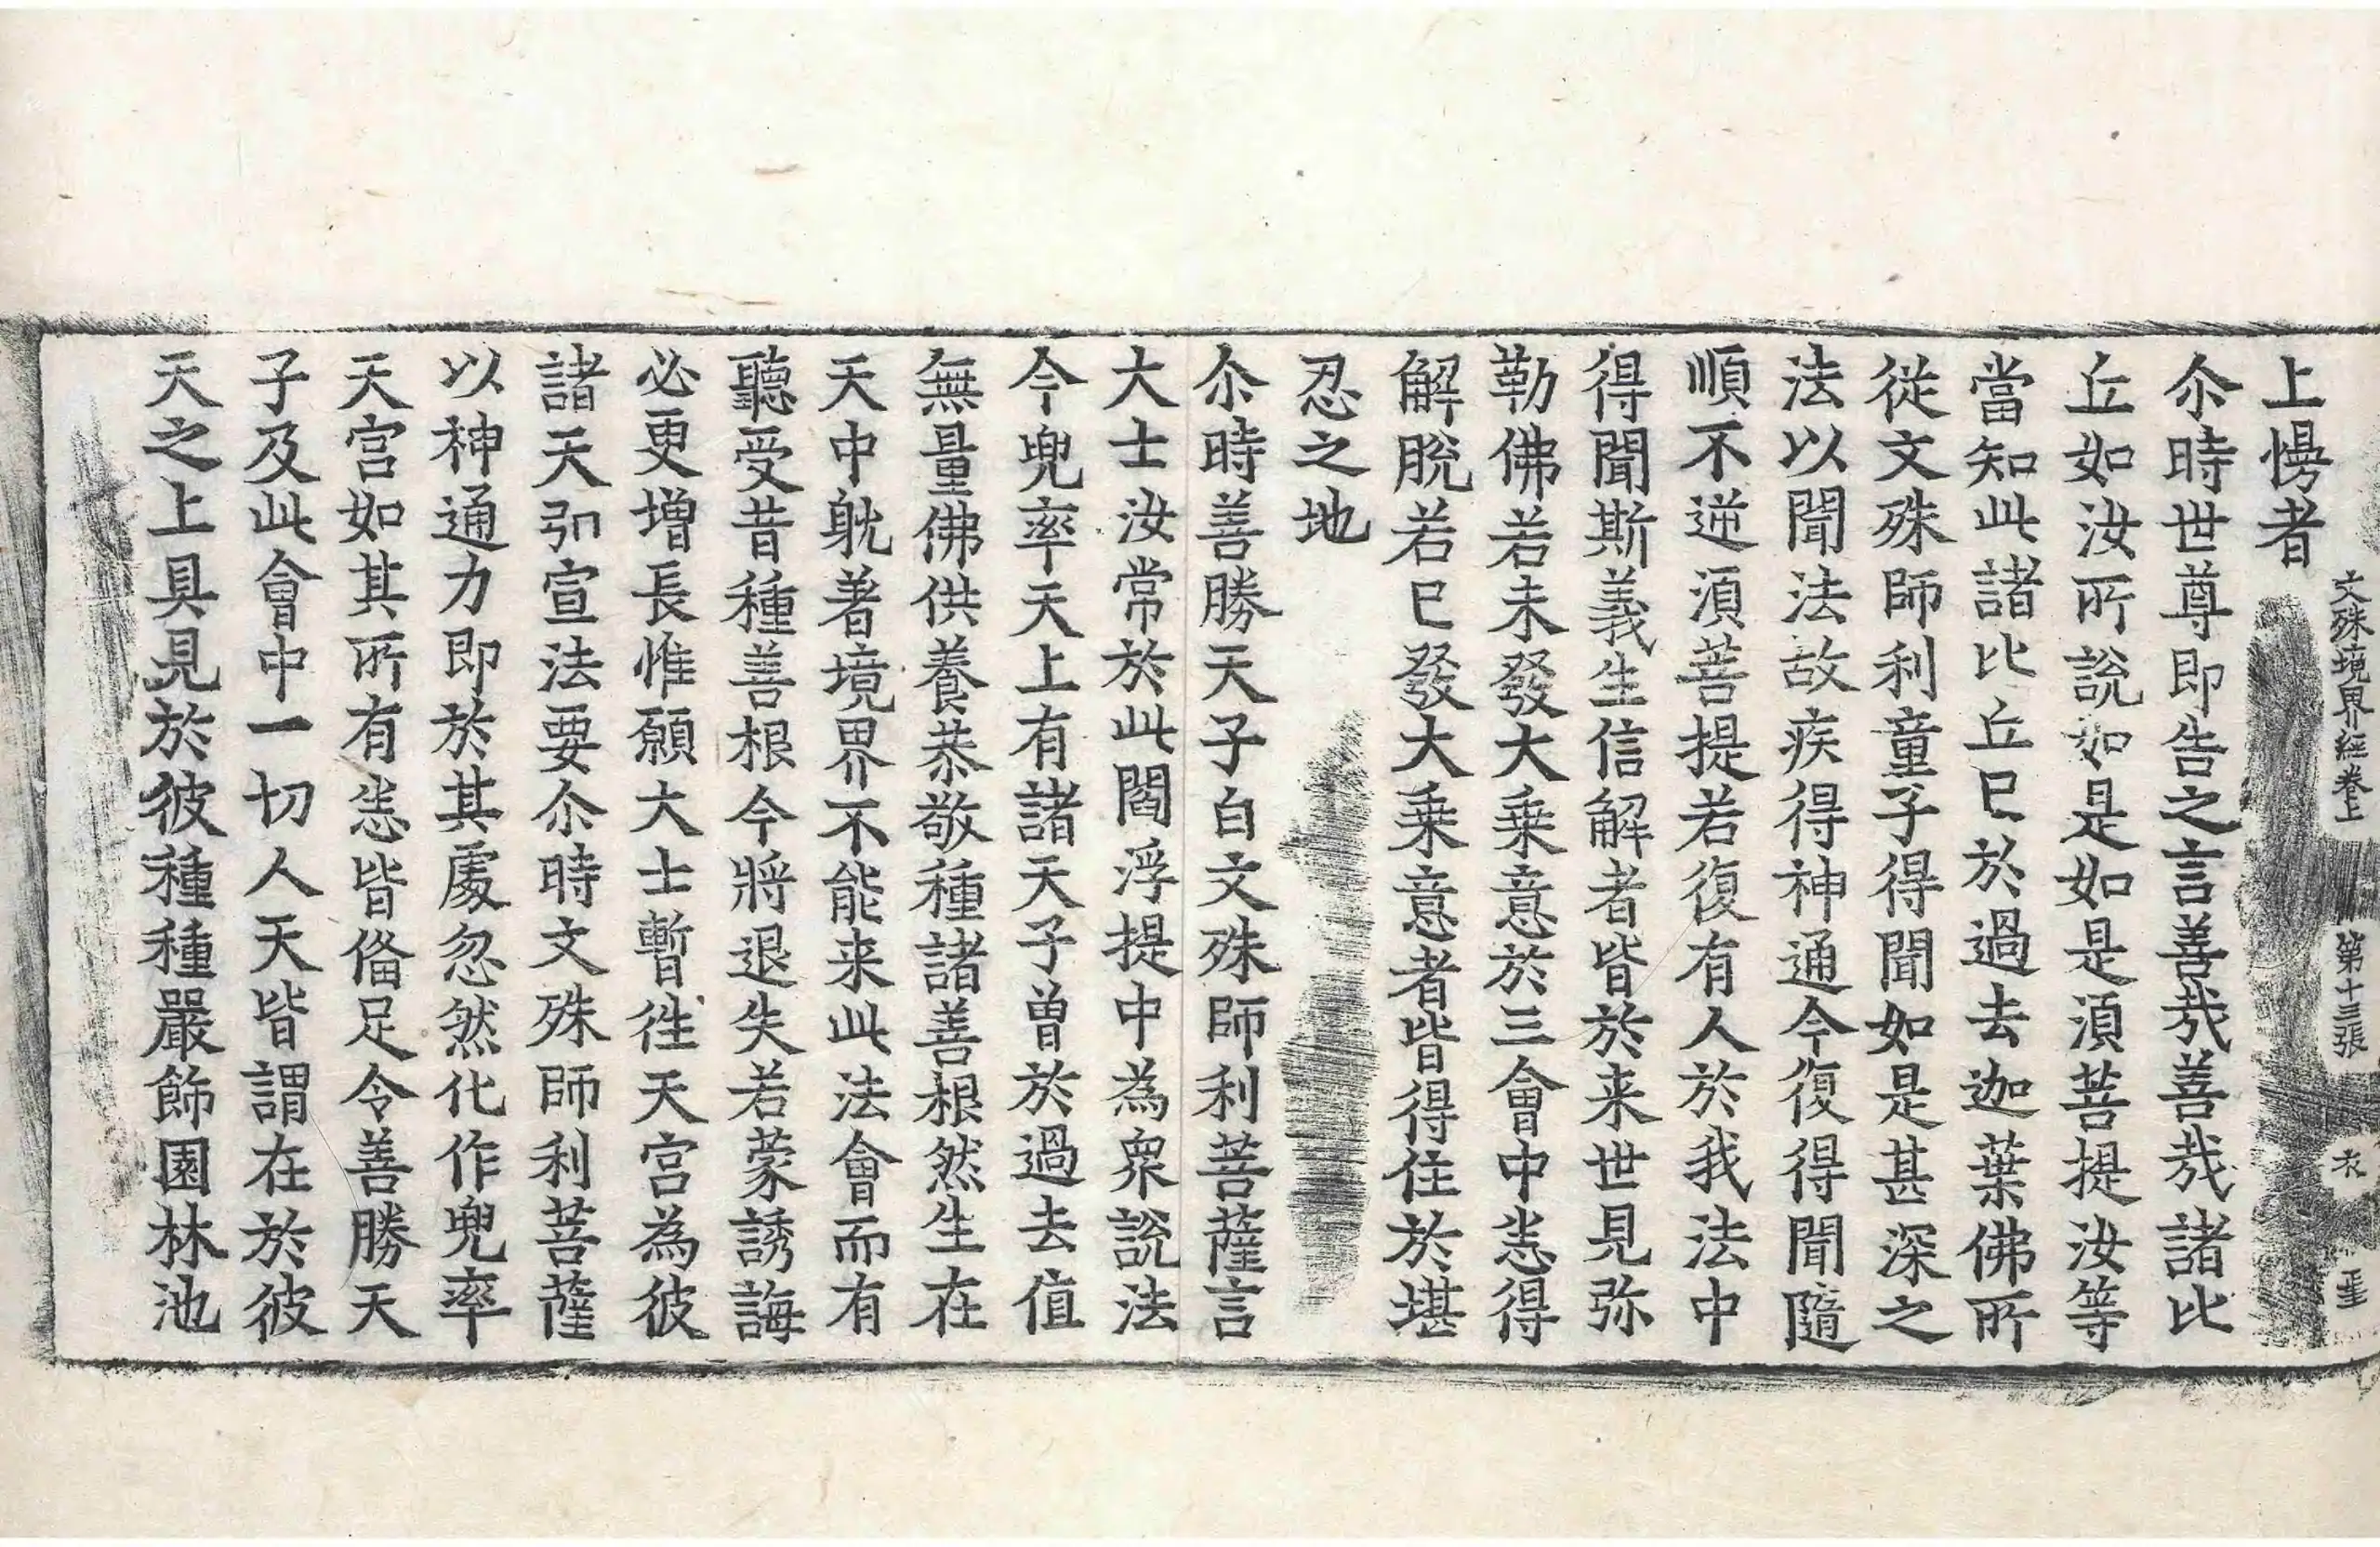 文殊境界経卷上 第十三張 衣
上慢者
尒時世尊即告之言善㢤善㢤諸比
丘如汝所說如是如是湏菩提汝等
當知此諸比丘已於過去迦葉佛所
從文殊師利童子得聞如是甚深之
法以聞法故疾得神通今復得聞隨
順不逆湏菩提若復有人於我法中
得聞斯義生信解者皆於来世見弥
勒佛若未發大乗意於三會中悉得
解脫若已發大乗意者皆得住於堪
忍之地
尒時善勝天子白文殊師利菩薩言
大士汝常於此閻浮提中為衆說法
今兜率天上有諸天子曾於過去值
無量佛供養恭敬種諸善根然生在
天中躭著境界不能来此法會而有
聽受昔種善根今將退失若蒙誘誨
必更增長惟願大士暫往天宮為彼
諸天弘宣法要尒時文殊師利菩薩
以神通力即於其處忽然化作兜率
天宮如其所有悉皆俻足令善勝天
子及此會中一切人天皆謂在於彼
天之上具見於彼種種嚴飾園林池